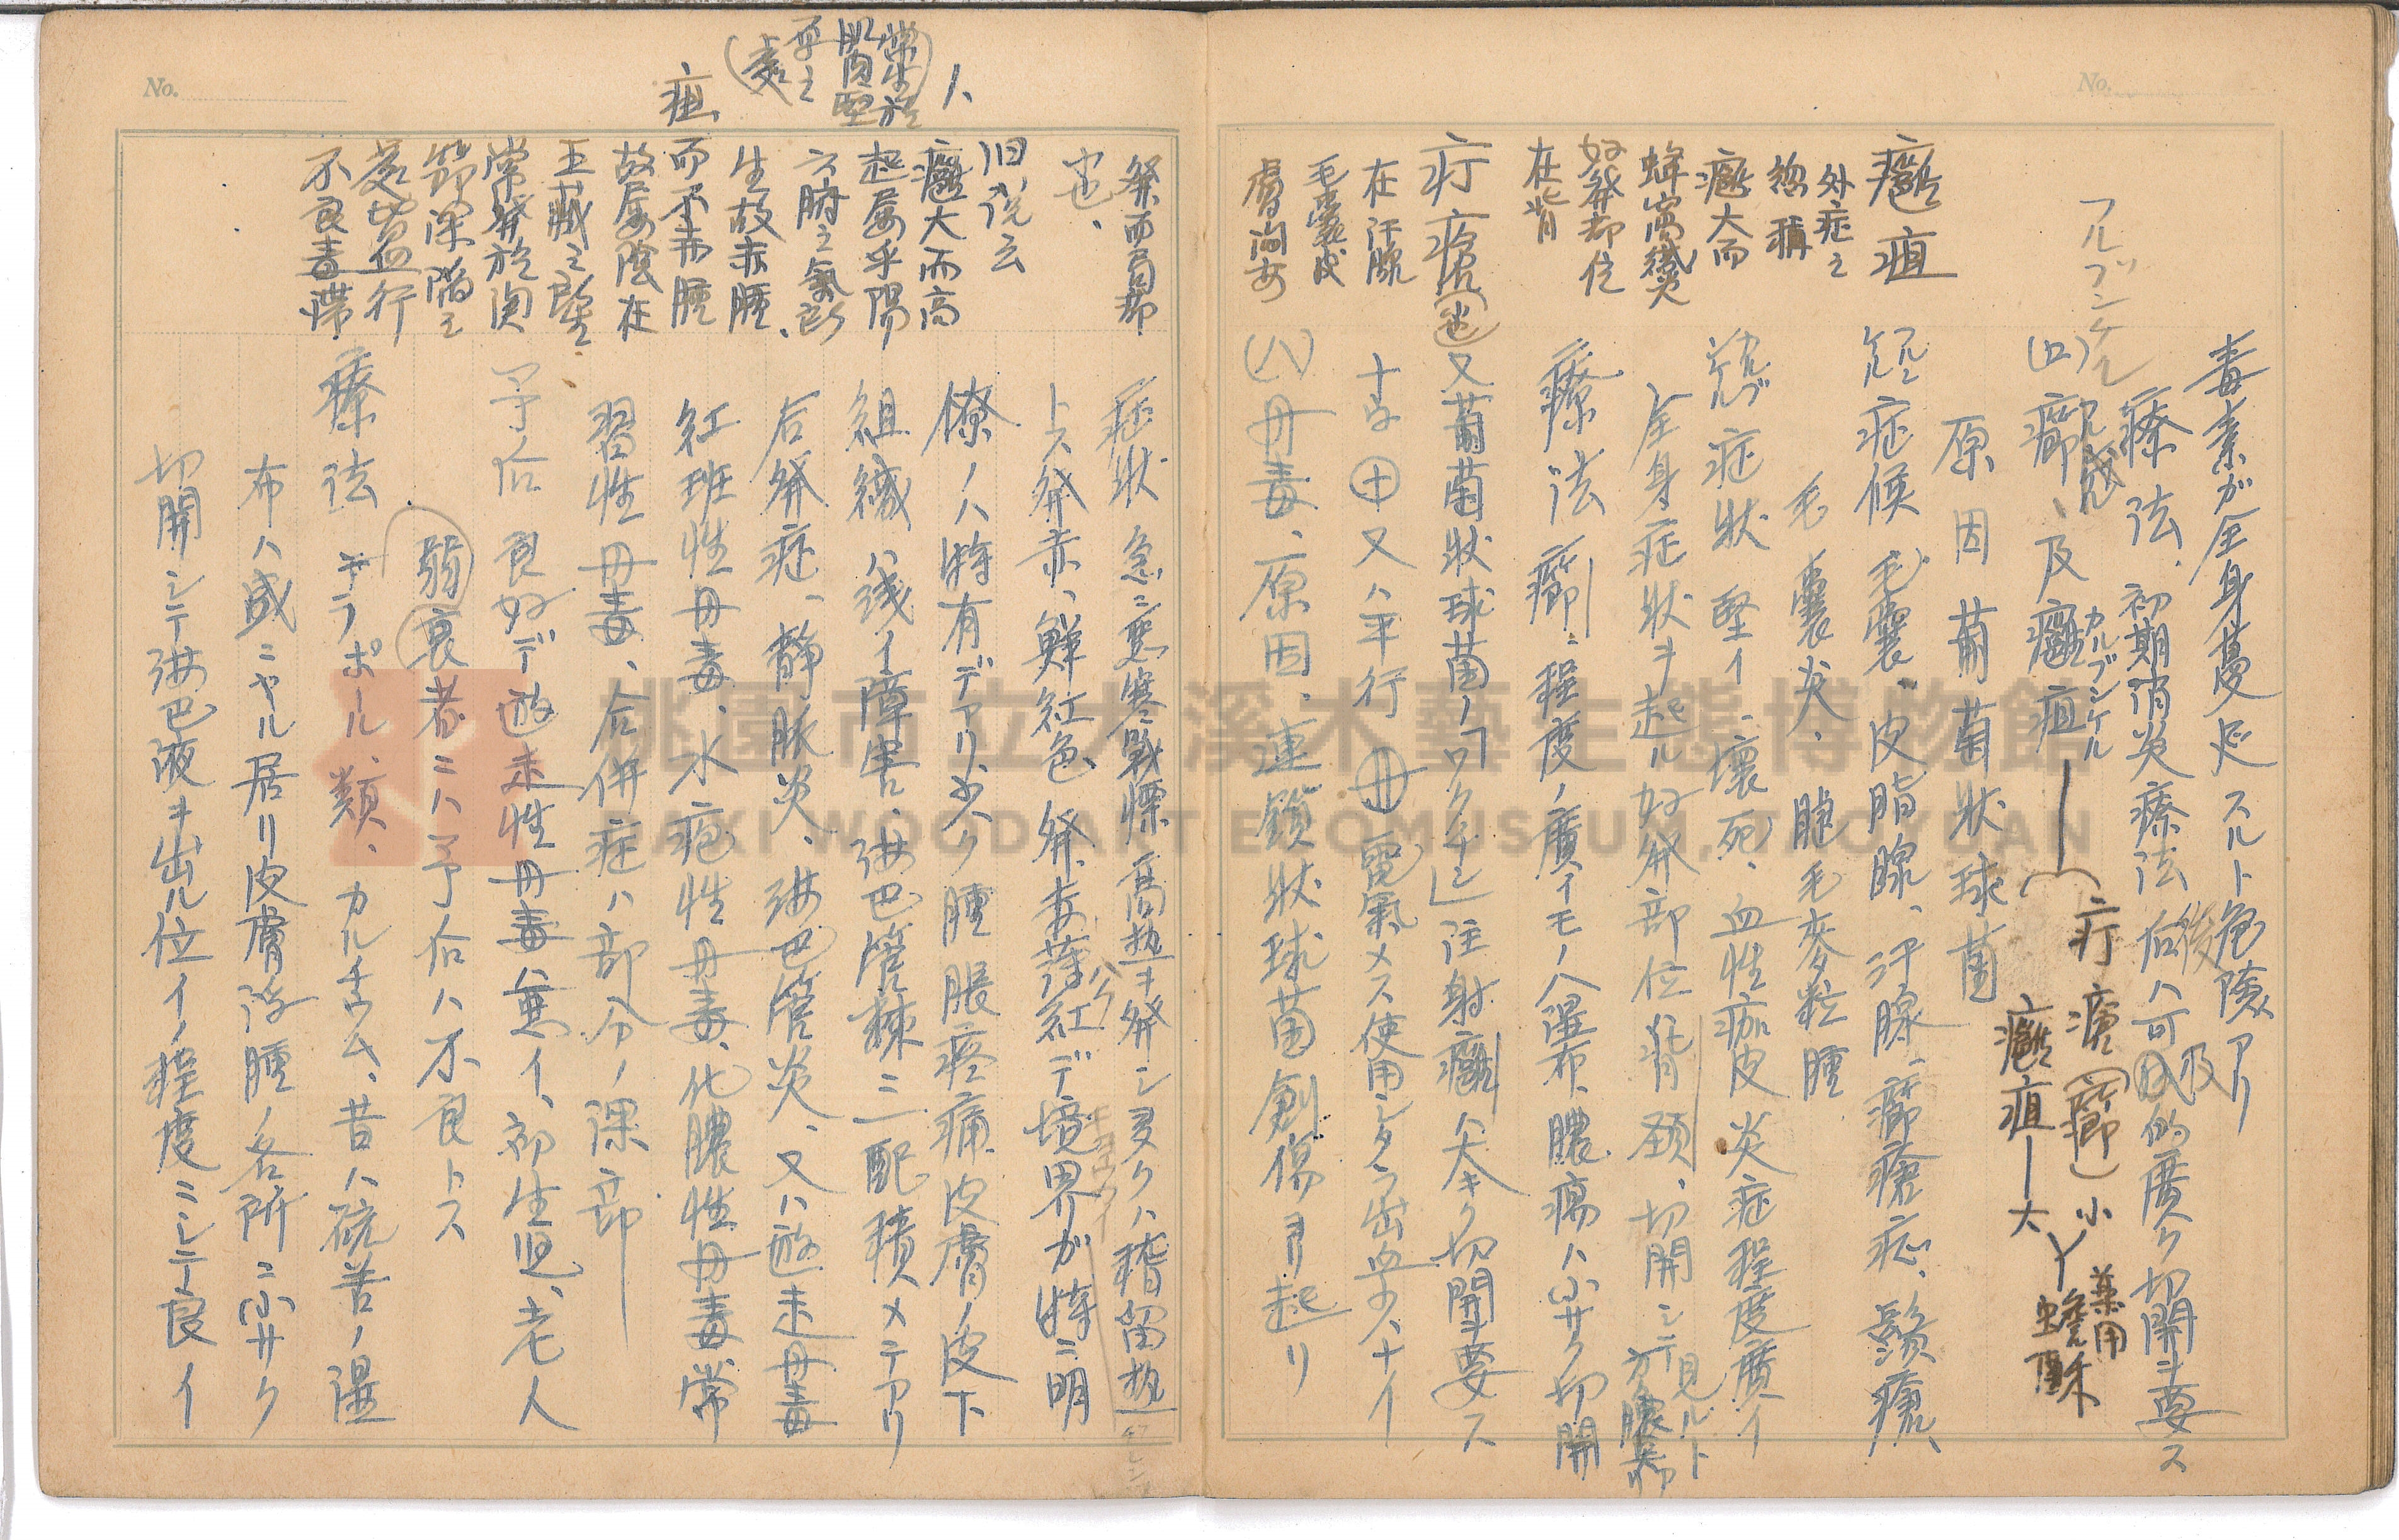 No.
毒素ガ全身蔓延スルト危険アリ
療法、初期消炎療法后ハ可及的廣ク切開ヲ要ス
後
及
フルンケル
(ロ)癤、及癰疽
カルブンケル
疔瘡(癤)小
癰疽ー大
薬用
蟾酥
フルブンケル
原因 葡萄状球菌
フルンケル 症候 毛嚢、皮脂腺、汗腺、癤瘡症、鬚瘡、
毛嚢炎、睫毛麥粒腫
カルブンケル 症状 堅イ、壊死、血性痂皮炎症程度廣イ
全身症状ヲ起ル好発部位背頚、切開シテ見ルト
療法 癤ニ程度ノ廣イモノハ湿布、膿瘍ハ小サク切開
又葡萄状球菌ノ「ワクチン」注射癰ハ大キク切開ヲ要ス
十字十又ハ平行 電氣メス使用シタラ出血少ナイ
(ハ)丹毒、原因、連鎖状球菌創傷ヨリ起リ
癰疽
外症之
総稱
癰大而
蜂窩織炎
好発部位
在背
疔瘡
在汗腺
毛嚢皮
膚間安
No.
症状 急ニ悪寒戦慄高熱ヲ発シ多クハ稽留熱
トス発赤、鮮紅色 発赤薄紅デ境界ガ特ニ明
瞭ノハ特有デアリ少ク腫脹疼痛皮膚ノ皮下
組織ハ浅イ障害、淋巴管棘ニ一配積メテアリ
后発症、静脈炎、淋巴管炎、又ハ遊走丹毒
紅斑性丹毒、水疱性丹毒、化膿性丹毒常
習性丹毒、合併症ハ部分ノ深部
予后良好デ遊走性丹毒ハ無イ、初生児、老人
弱衰者ニハ予后ハ不良トス
療法 テラポール、類、カルチウム、昔ハ硫苦ノ湿
布ハ盛ニヤル居リ皮膚浮腫ノ各所ニ小サク
切開シテ淋巴液ヲ出ル位イノ程度ニシテ良イ
発而局部
也、
旧説云
癰大而高
起屬乎陽
六腑之氣所
生故赤腫、
疽、而不赤腫
故屬陰在
五臓之陰
常発於関
節深階之
處皆血行
不良毒滞
(常生於
肌肉堅
厚之
處)